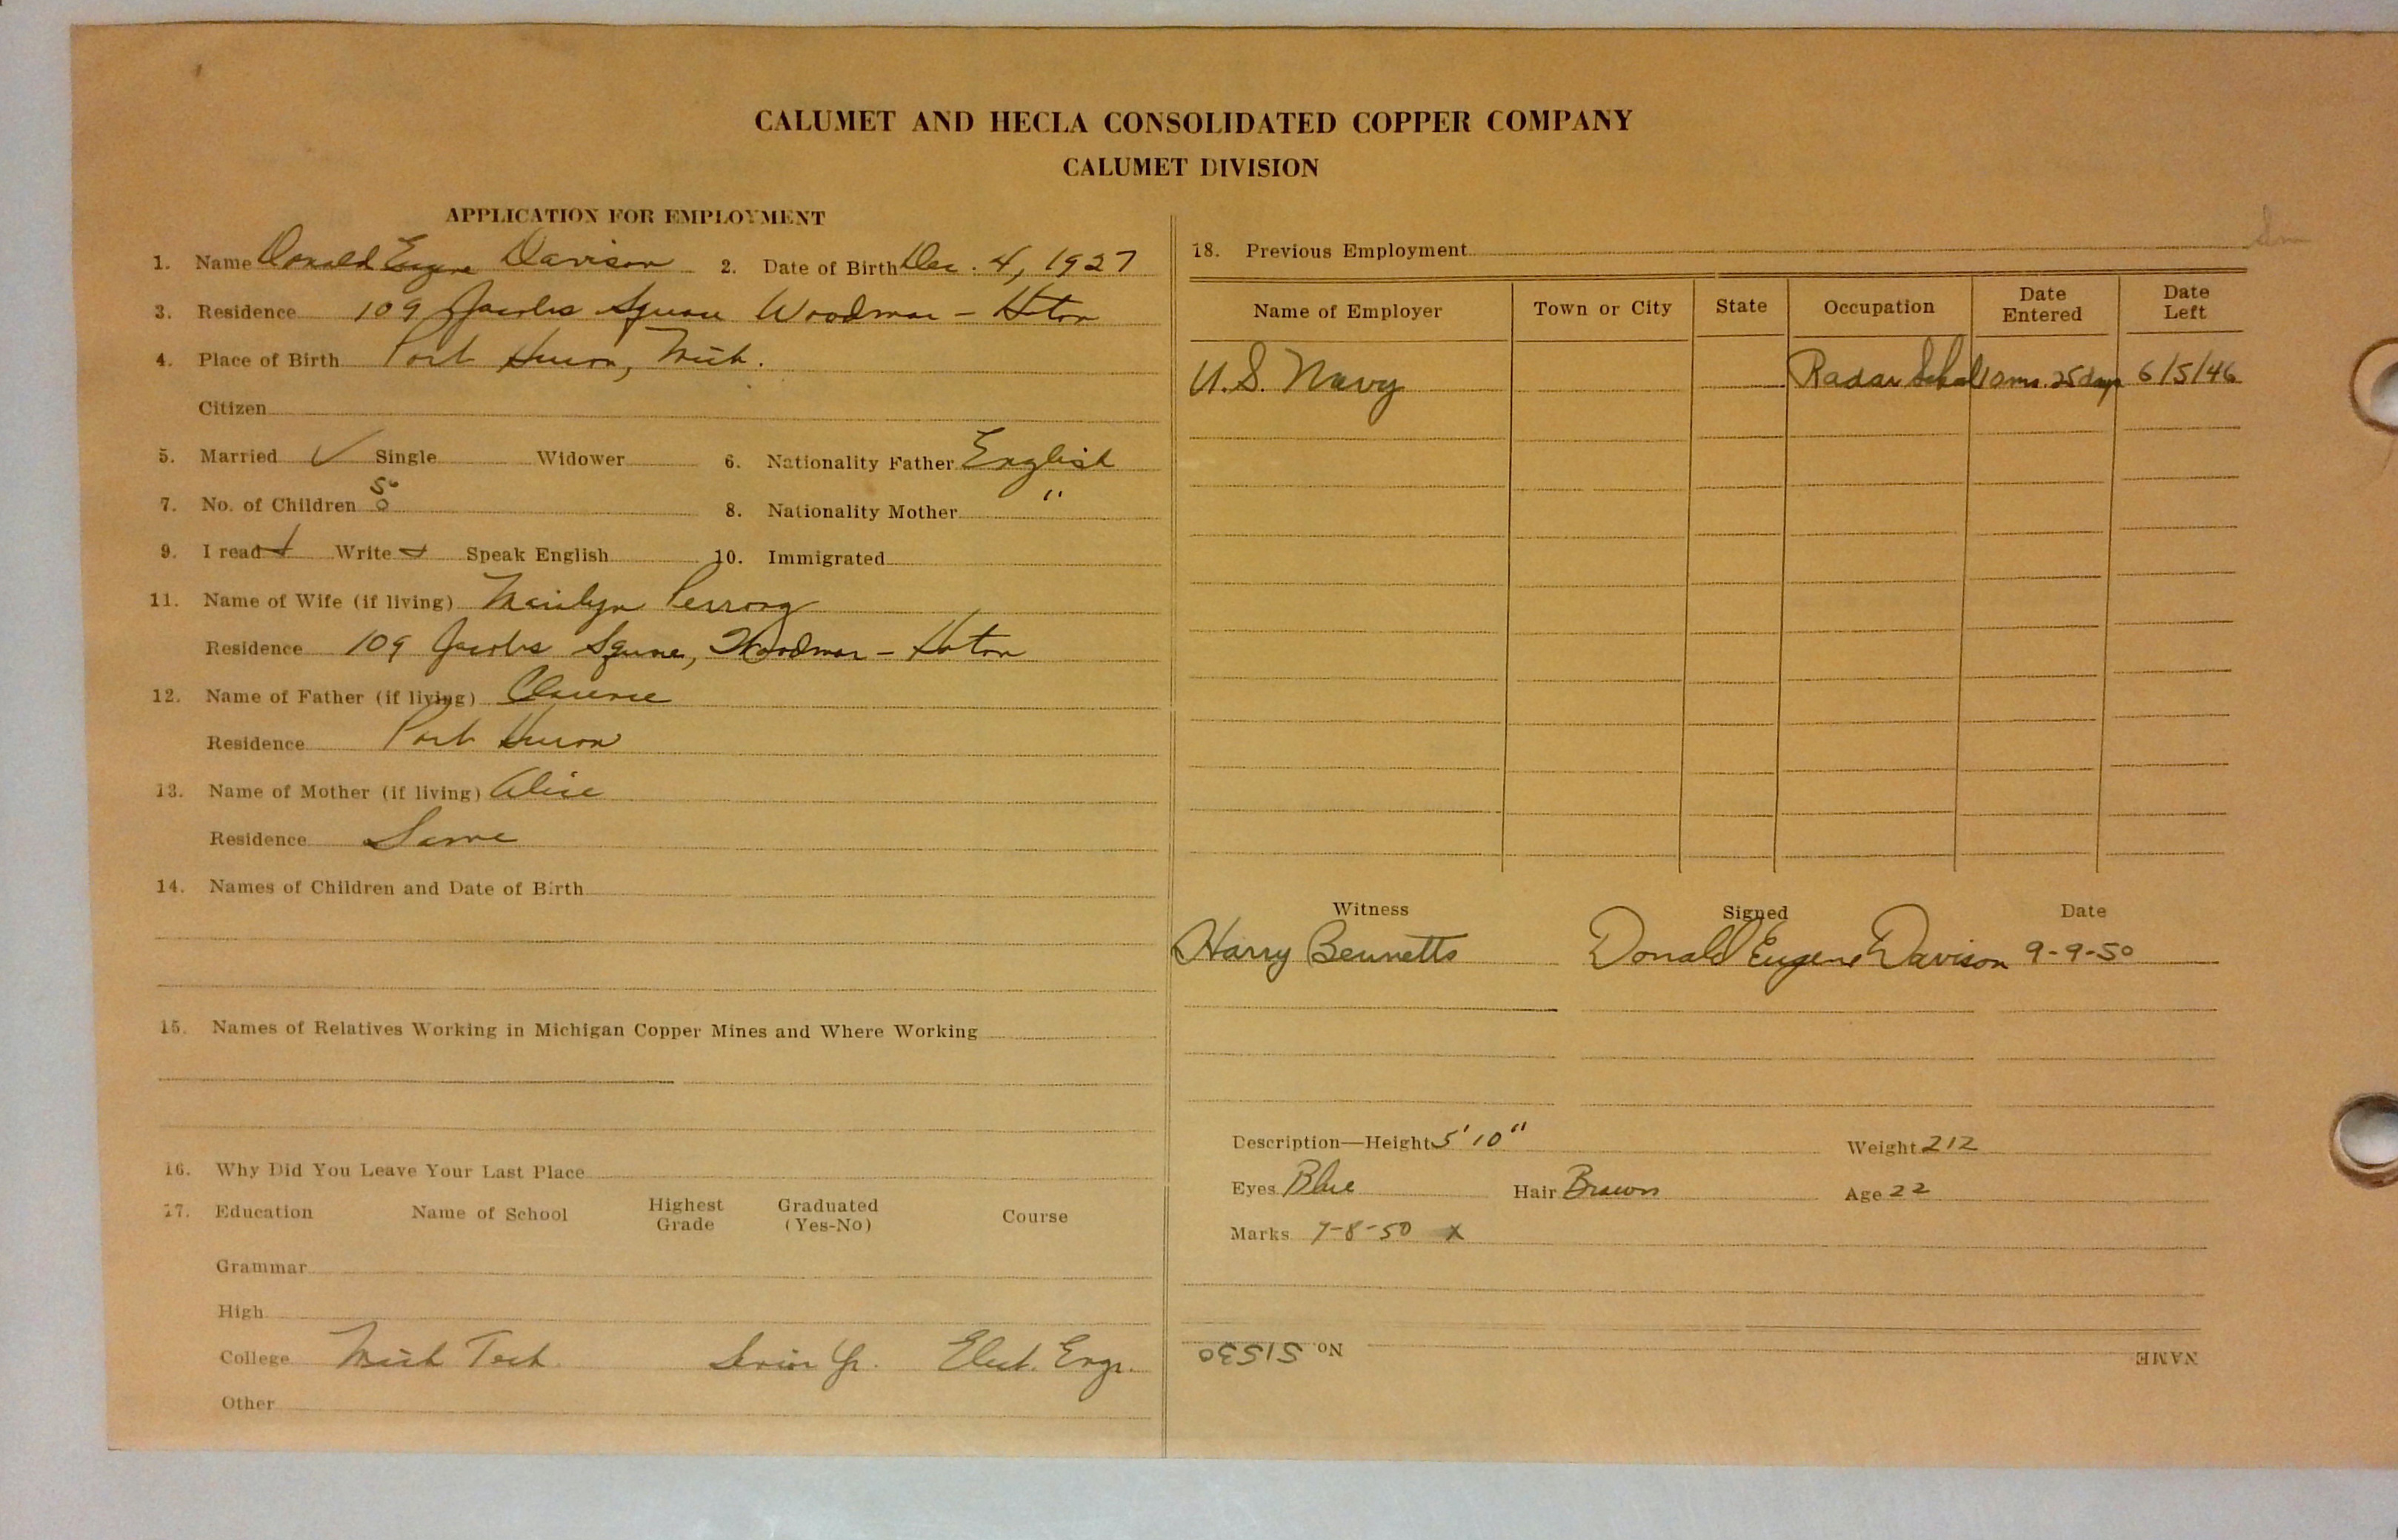 CALUMET AND HECLA CONSOLIDATED COPPER COMPANY
CALUMET DIVISION
APPLICATION FOR EMPLOYMENT
1. Name Donald Eugene Davison 2. Date of Birth Dec. 4, 1927
3. Residence 109 Jacobs Square Woodmar - Hton
4. Place of Birth Port Huron, Mich.
Citizen
5. Married ✓ Single Widower 6. Nationality Father English
7. No. of Children 0 8. Nationality Mother "
9. I read Write Speak English 10. Immigrated
11. Name of Wife (if living) Marilyn Perrong
Residence 109 Jacobs Square, Woodmar - Hton
12. Name of Father (if living) Clarence
Residence Port Huron
13. Name of Mother (if living) Alice
Residence Same
14. Names of Children and Date of Birth
15. Names of Relatives Working in Michigan Copper Mines and Where Working
16. Why Did You Leave Your Last Place
17. Education Name of School Highest Grade Graduated (Yes-No) Course
Grammar
High
College Mich Tech Senior Yr. Elect. Engr.
Other
18. Previous Employment
Name of Employer Town or City State Occupation Date Entered Date Left
U.S. Navy Radar School 10 mo. 25 days 6/5/46
Witness Signed Date
Harry Bennetts Donald Eugene Davison 9-9-50
Description—Height 5'10" Weight 212
Eyes Blue Hair Brown Age 22
Marks 7-8-50 X
NAME No. 51530